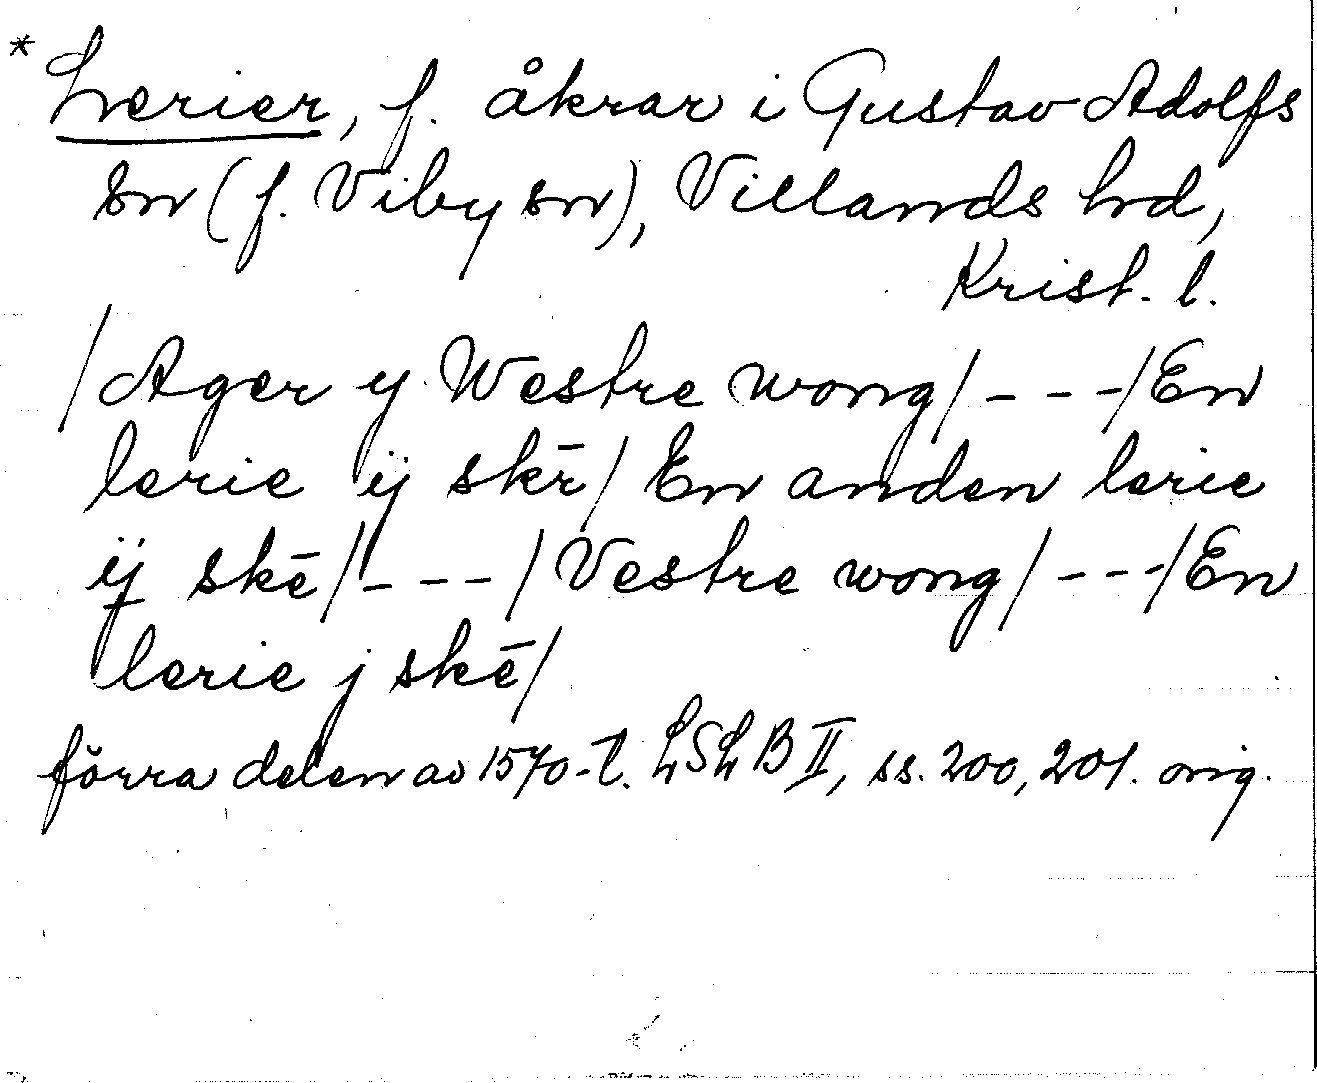 * Lerier, f. åkrar i Gustav Adolfs
sn (f. Viby sn), Villands hd,
Krist. l.
/Ager y Westre wong/ - - - /En
lerie ij skē/ En anden lerie
ij skē/ - - - /Vestre wong/ - - - /En
lerie j skē/
förra delen av 1570-t. LSLB II, ss. 200, 201. orig.